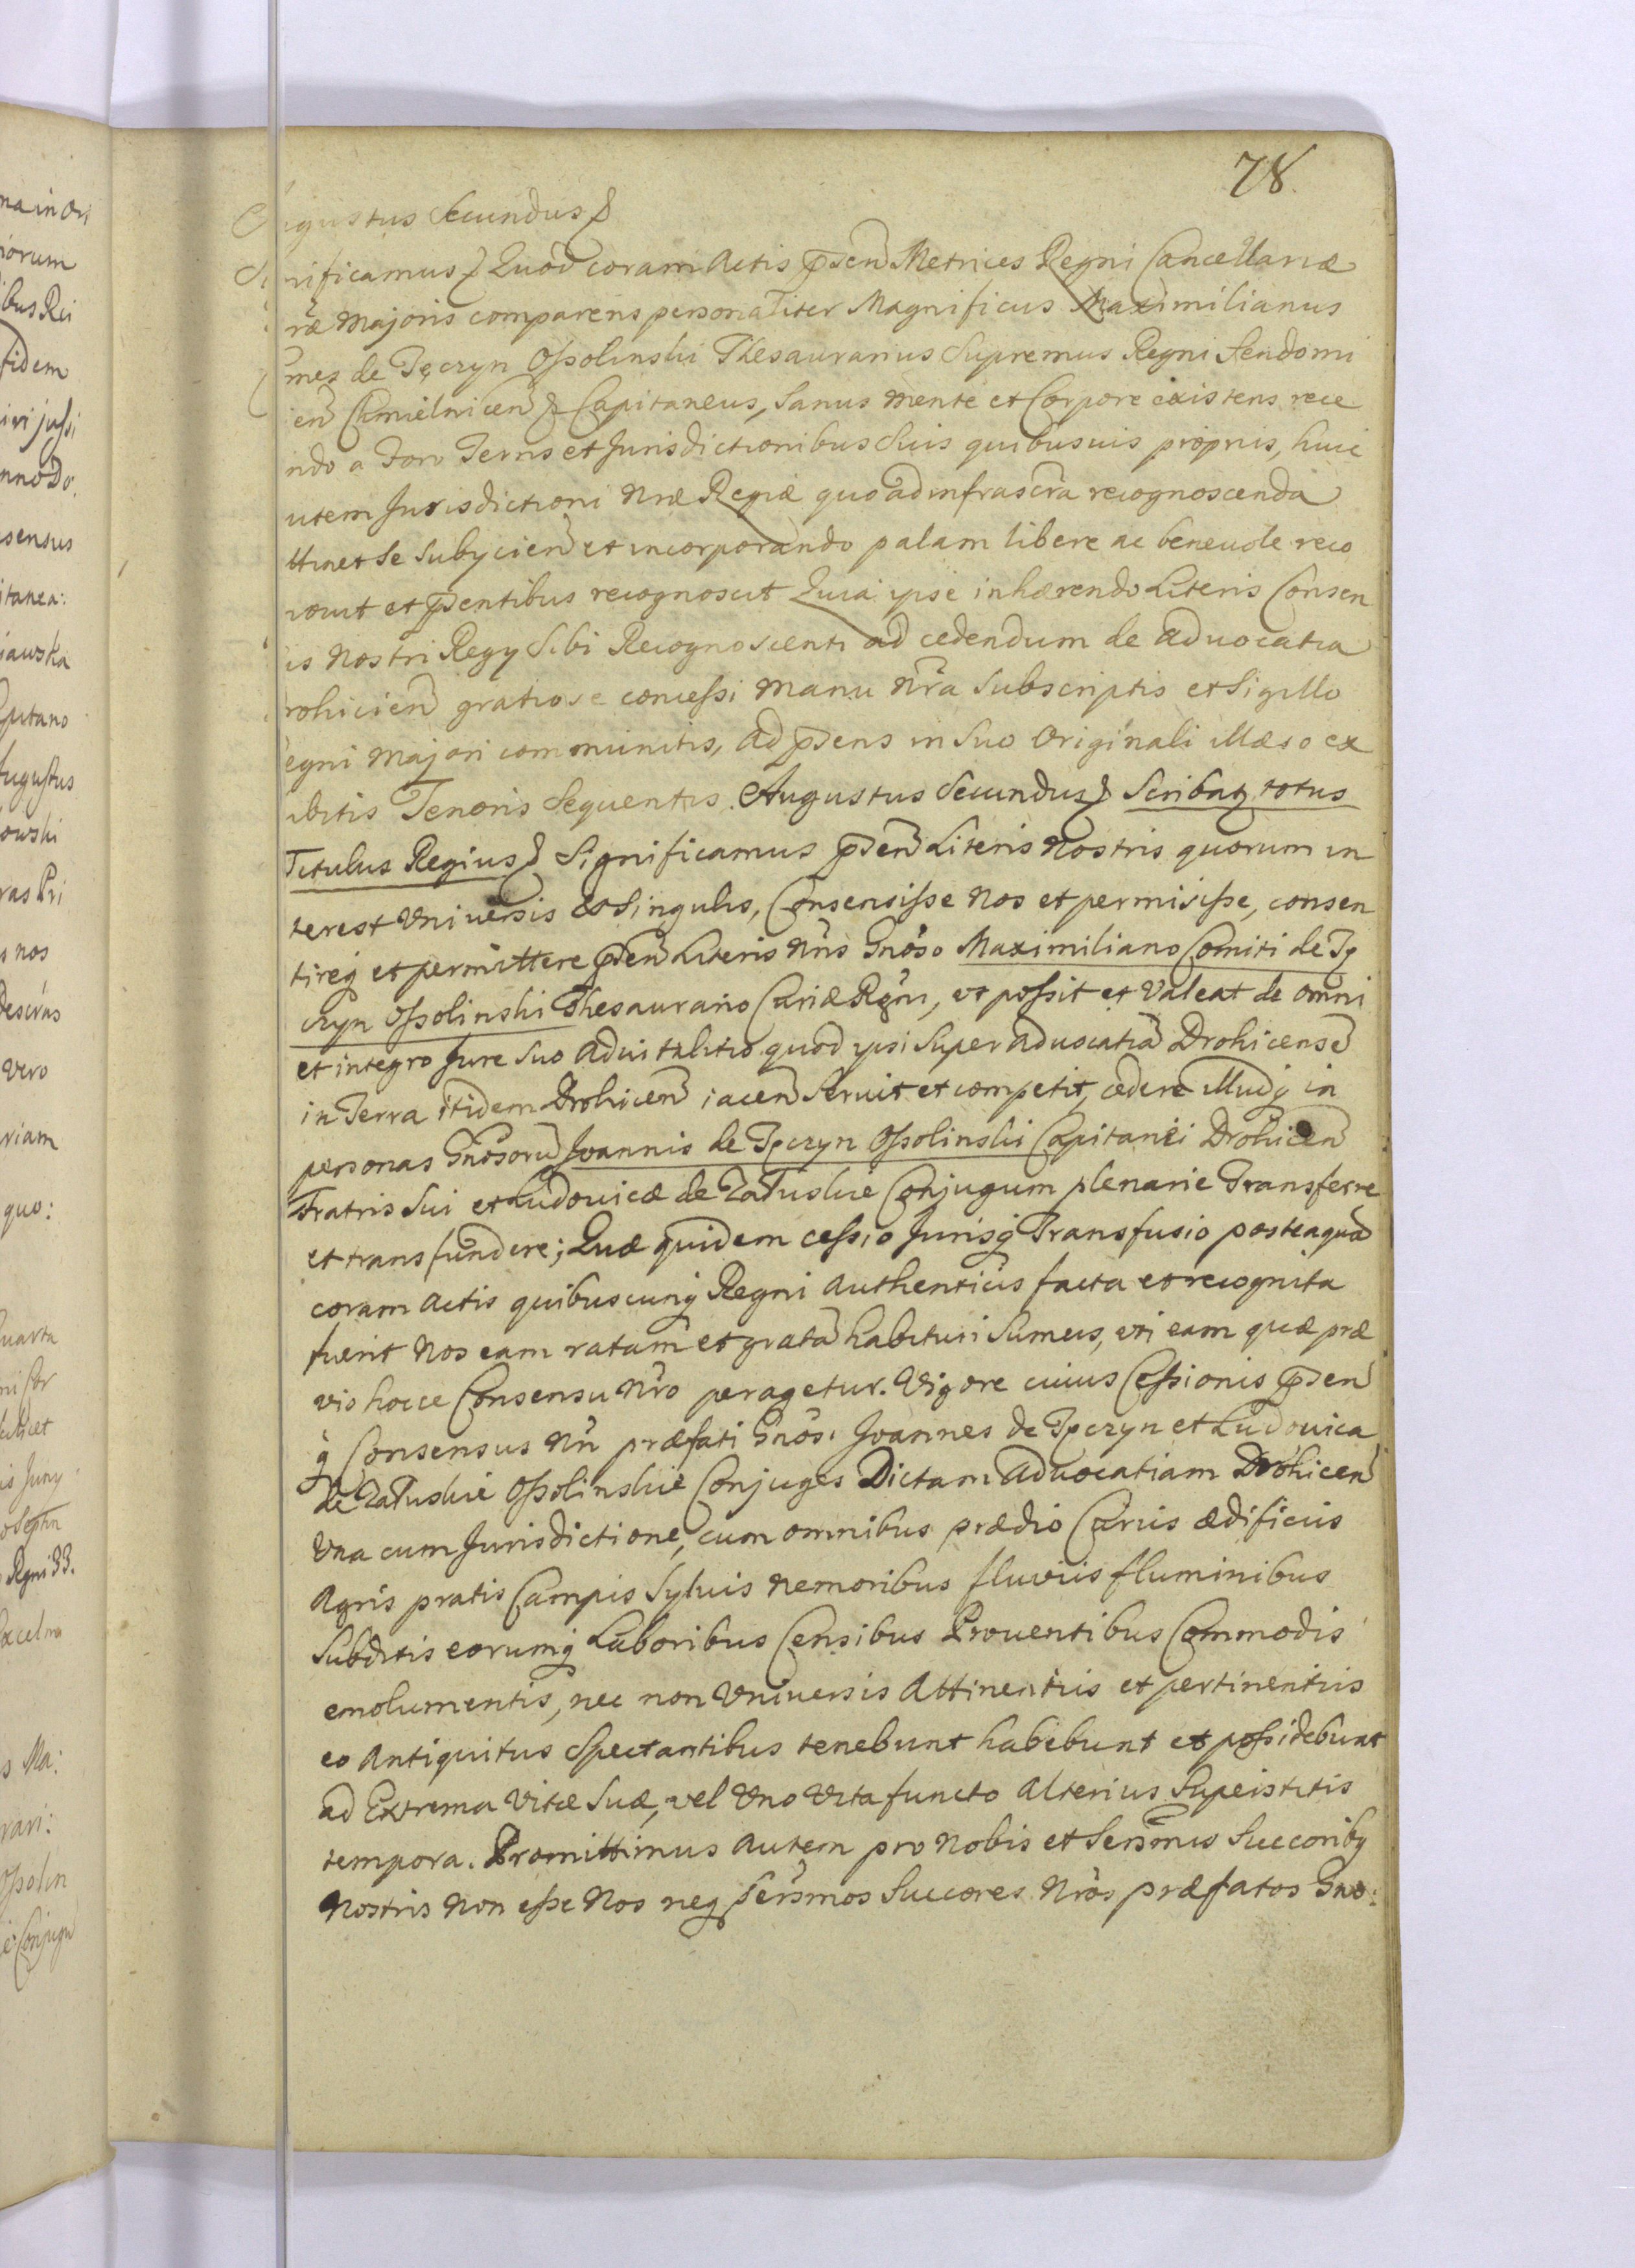 78.
Augustus Secundus
Significamus Quod coram Actis p̄sen̄ Metrices Regni Cancellariæ
ræ Majoris comparens personaliter Magnificus Maximilianus
mes de Tęczyn Ossolinski Thesaurarius Supremus Regni Sendomi
ien̄ Chmielnicen̄ & Capitaneus, Sanus mente et Corpore existens rece
ndo a Foro Terris et Jurisdictionibus Suis quibusuis proprijs, huic
utem Jurisdictioni Nræ Regiæ quo ad infrascr̄a recognoscenda
ttinet se Subycien̄ et incorporando palam libere ac beneuole reco
vouit et p̄sentibus recognoscit Quia ipse inhærendo Literis Consen
is Nostri Regy Sibi Recognoscenti ad cedendum de Aduocatia
rohicien̄ gratiose concessi Manu Nr̄a Subscriptis et Sigillo
egni Majori communitis, Ad p̄sens in Suo Originali illæso ex
ibitis Tenoris Sequentis. Augustus Secundus Scribatq totus
Titulus Regius Significamus p̄sen̄ Literis Nostris quorum in
terest Vniuersis et Singulis, Consensisse Nos et permisisse, consen
tireq et permittere p̄sen̄ Literis Nris Gnoso Maximiliano Comiti de Tę
czyn Ossolinski Thesaurario Curiæ Regni, vt possit et Valeat de omni
et integro Jure Suo Aduitalitio quod ipsi Super Aduocatiā Drohicensē
in Terra itidem Drohicen̄ iacen̄ Seruit et competit, cedere illudq in
personas Gnosorū Joannis de Tęczyn Ossolinski Capitanei Drohicen̄
Fratris Sui et Ludouicæ de Załuskie Conjugum plenarie Transferre
et transfundere; Quæ quidem cessio Jurisq Transfusio posteaquā
coram Actis quibuscunq Regni Authenticis facta et recognita
fuerit Nos eam ratam et gratā habituri Sumus, vti eam quæ præ
vio hocce Consensu Nr̄o peragetur. Vigore cuius Cessionis p̄sen̄
q Consensus Nri præfati Gnosi Joannes de Tęczyn et Ludouica
de Załuskie Ossolinskie Conjuges Dictam Aduocatiam Drohicen̄
Vna cum Jurisdictione, cum omnibus prædio Curiis ædificiis
Agris pratis Campis Syluis Nemoribus fluuiis fluminibus
Subditis eorumq Laboribus Censibus Prouentibus Commodis
emolumentis, nec non Vniuersis Attinentiis et pertinentiis
eo Antiquitus Spectantibus tenebunt habebunt et possidebunt
ad Extrema Vitæ Suæ, vel Vno Vita functo Alterius Superstitis
tempora. Promittimus Autem pro Nobis et Sersmis Succoribq
Nostris Non esse Nos neq Sersmos Succores Nros præfatos Gno: